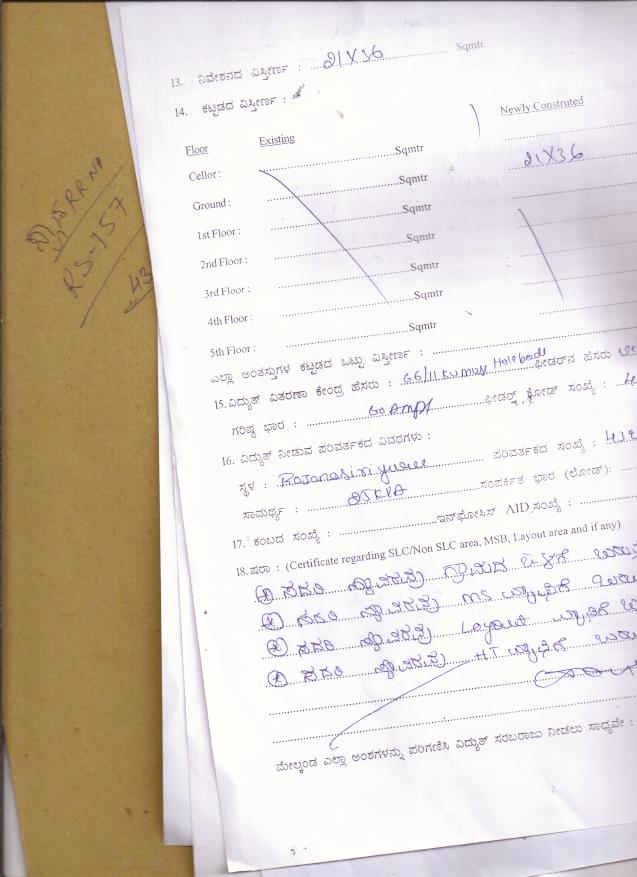 13. ನಿವೇಶನದ ವಿಸ್ತೀರ್ಣ : 21X36 Sqmtr.
14. ಕಟ್ಟಡದ ವಿಸ್ತೀರ್ಣ :
Floor Existing Newly Construted
Cellor : Sqmtr
Ground : Sqmtr 21X36
1st Floor : Sqmtr
2nd Floor : Sqmtr
3rd Floor : Sqmtr
4th Floor : Sqmtr
5th Floor : Sqmtr
ಎಲ್ಲಾ ಅಂತಸ್ತುಗಳ ಕಟ್ಟಡದ ಒಟ್ಟು ವಿಸ್ತೀರ್ಣ :
15. ವಿದ್ಯುತ್ ವಿತರಣಾ ಕೇಂದ್ರ ಹೆಸರು : 66/11 ಫೀಡರ್‌ನ ಹೆಸರು
ಗರಿಷ್ಠ ಭಾರ : 60 Amps ಫೀಡರ್ಸ್ ಕೋಡ್ ಸಂಖ್ಯೆ :
16. ವಿದ್ಯುತ್ ನೀಡುವ ಪರಿವರ್ತಕದ ವಿವರಗಳು :
ಸ್ಥಳ : ಪರಿವರ್ತಕದ ಸಂಖ್ಯೆ :
ಸಾಮರ್ಥ್ಯ : 25KVA ಸಂಪರ್ಕಿತ ಭಾರ (ಲೋಡ್):
17. ಕಂಬದ ಸಂಖ್ಯೆ : ಇನ್‌ಫೋಸಿಸ್ AID ಸಂಖ್ಯೆ :
18. ಷರಾ : (Certificate regarding SLC/Non SLC area, MSB, Layout area and if any)
ಸದರಿ ಸ್ಥಾವರವು ಗ್ರಾಮದ
ಸದರಿ ಸ್ಥಾವರವು MS ವ್ಯಾಪ್ತಿಗೆ
ಸದರಿ ಸ್ಥಾವರವು Layout ವ್ಯಾಪ್ತಿಗೆ
ಸದರಿ ಸ್ಥಾವರವು HT ವ್ಯಾಪ್ತಿಗೆ
ಮೇಲ್ಕಂಡ ಎಲ್ಲಾ ಅಂಶಗಳನ್ನು ಪರಿಗಣಿಸಿ ವಿದ್ಯುತ್ ಸರಬರಾಜು ನೀಡಲು ಸಾಧ್ಯವೇ :
RR NO
RS-157
43